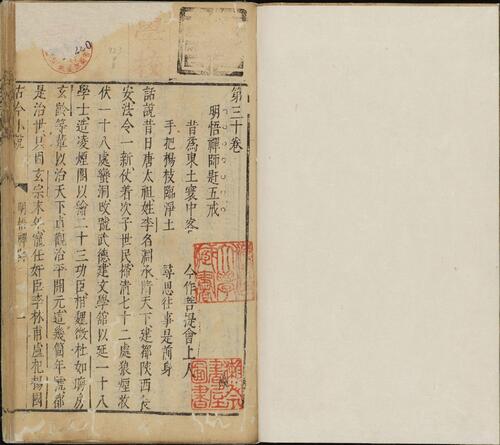 第三十卷
明悟禪師趕五戒
昔爲東土寰中客　今作菩提會上人
手把楊枝臨淨土　尋思往事是前身
話說昔日唐太祖姓李名淵承隋天下建都陝西長
安法令一新仗着次子世民掃清七十二處狼煙收
伏一十八處蠻洞改號武德建文學館以延一十八
學士造凌煙閣以繪二十三功臣相魏徵杜如晦房
玄齡等輩以治天下貞觀治平開元這幾箇年號都
是治世只因玄宗末年寵任奸臣李林甫盧杞楊國
古今小說　明悟禪師　一